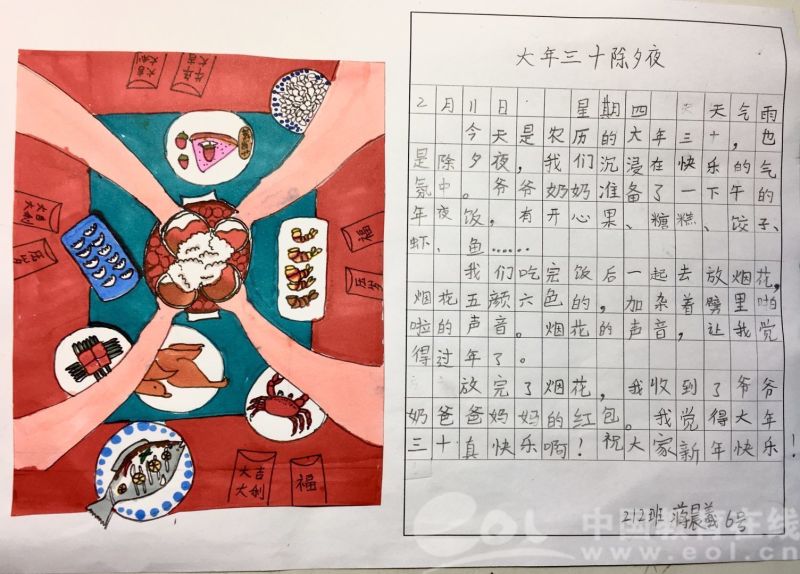 大年三十除夕夜
2月11日 星期四 天气雨
今天是农历的大年三十，也
是除夕夜，我们沉浸在快乐的气
氛中。爷爷奶奶准备了一下午的
年夜饭，有开心果、糖糕、饺子、
虾、鱼……
我们吃完饭后一起去放烟花，
烟花五颜六色的，加杂着劈里啪
啦的声音。烟花的声音，让我觉
得过年了。
放完了烟花，我收到了爷爷
奶爸爸妈妈的红包。我觉得大年
三十真快乐啊！祝大家新年快乐！
212班 蒋晨羲 6号
大吉
大利
福
大吉
大利
福
eol 中国教育在线
www.eol.cn